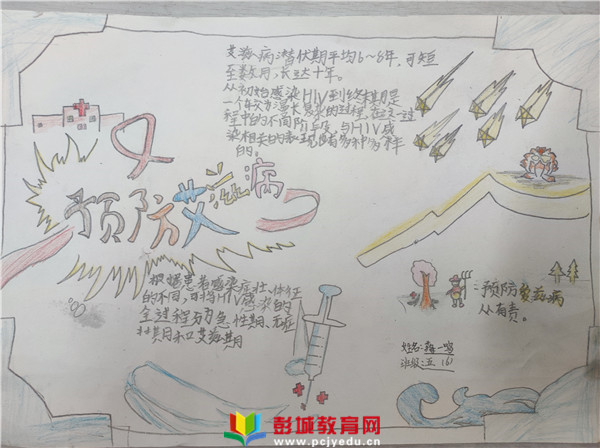 艾滋病潜伏期平均6~8年,可短
至数月,长达十年。
从初始感染HIV到终末期是
一个较为漫长复杂的过程,在这一过
程中的不同阶段,与HIV感
染相关的表现也是多种多样
的。
预防艾滋病
根据患者感染症状、体征
的不同,可将HIV感染的
全过程分为急性期、无症
状期和艾滋期
预防艾滋病
人人有责。
姓名:
班级:五(6)
彭城教育网
www.pcjyedu.cn